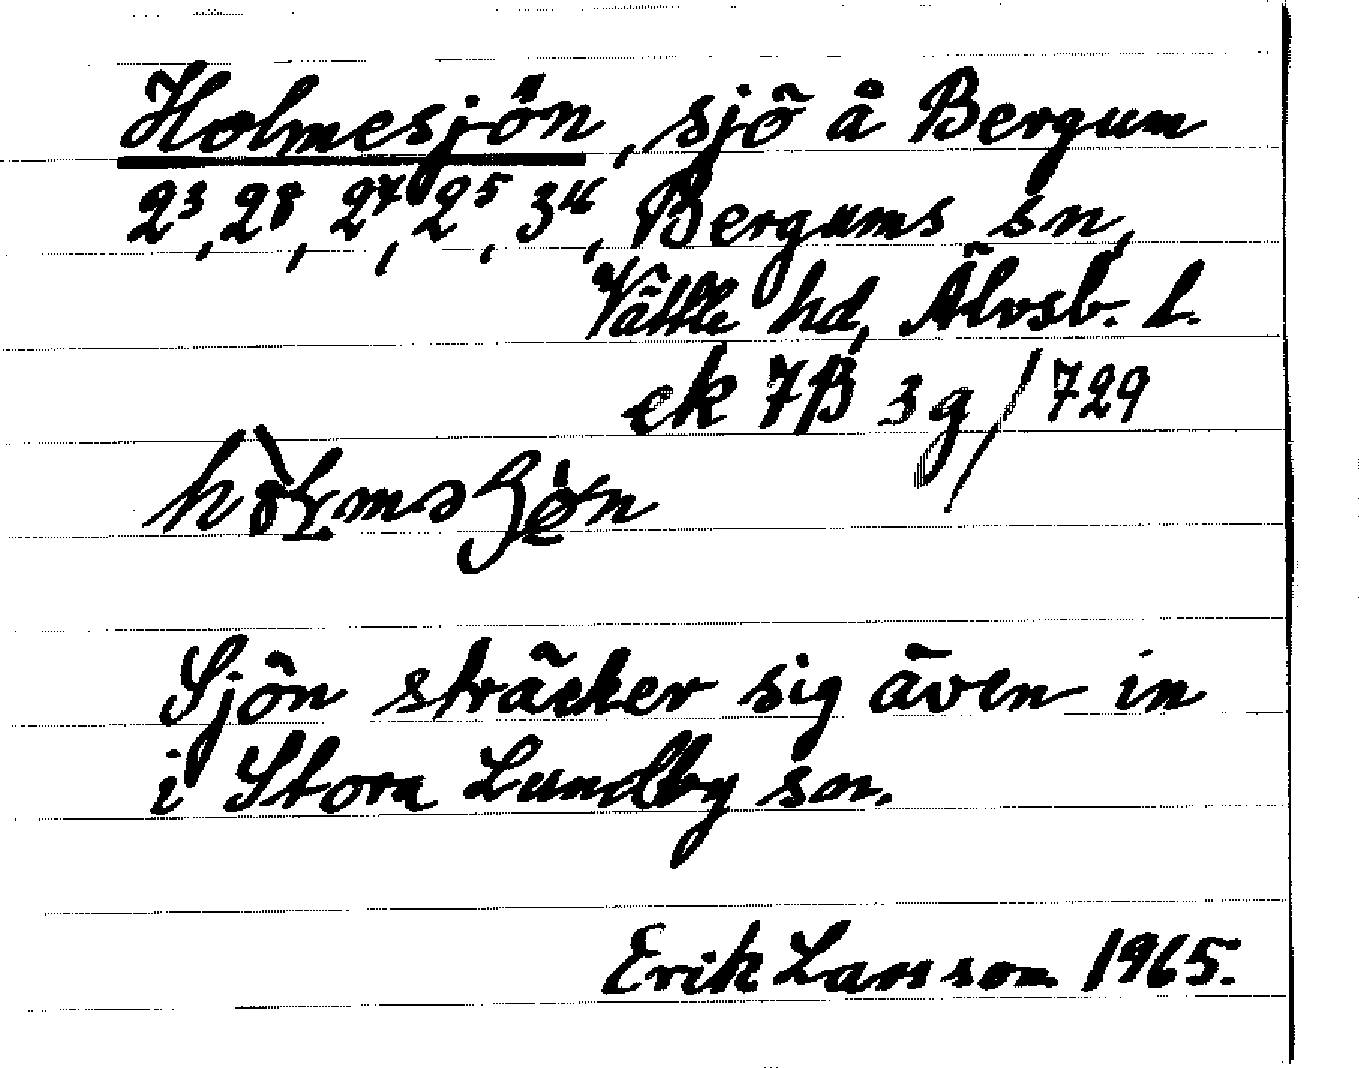 Holmesjön, sjö å Bergum
2³, 2⁸, 2⁷, 2⁵, 3¹⁶, Bergums sn,
Vättle hd, Älvsb. l.
ek 7B 3g/729
Sjön sträcker sig även in
i Stora Lundby sn.
Erik Larsson 1965.